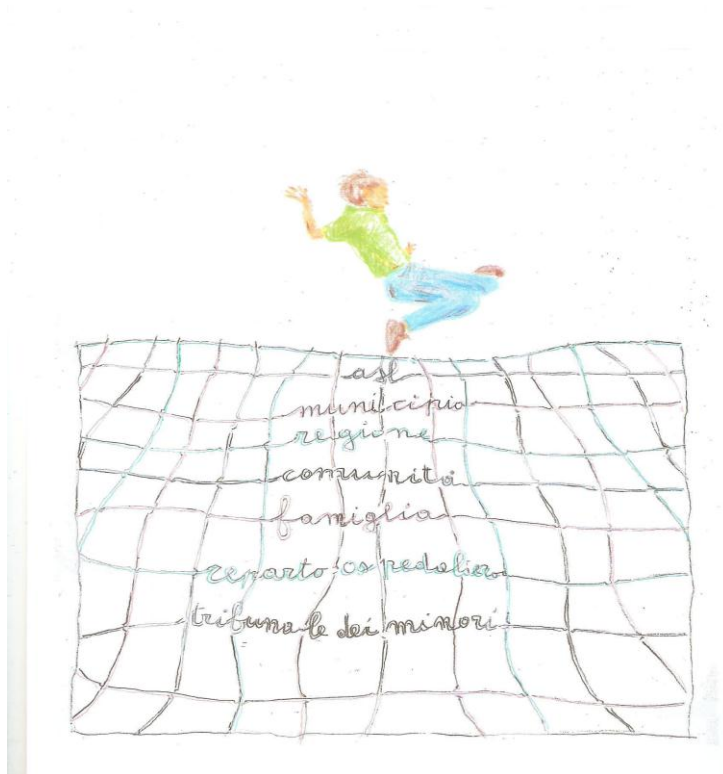 asl
municipio
regione
comunità
famiglia
reparto ospedaliero
tribunale dei minori